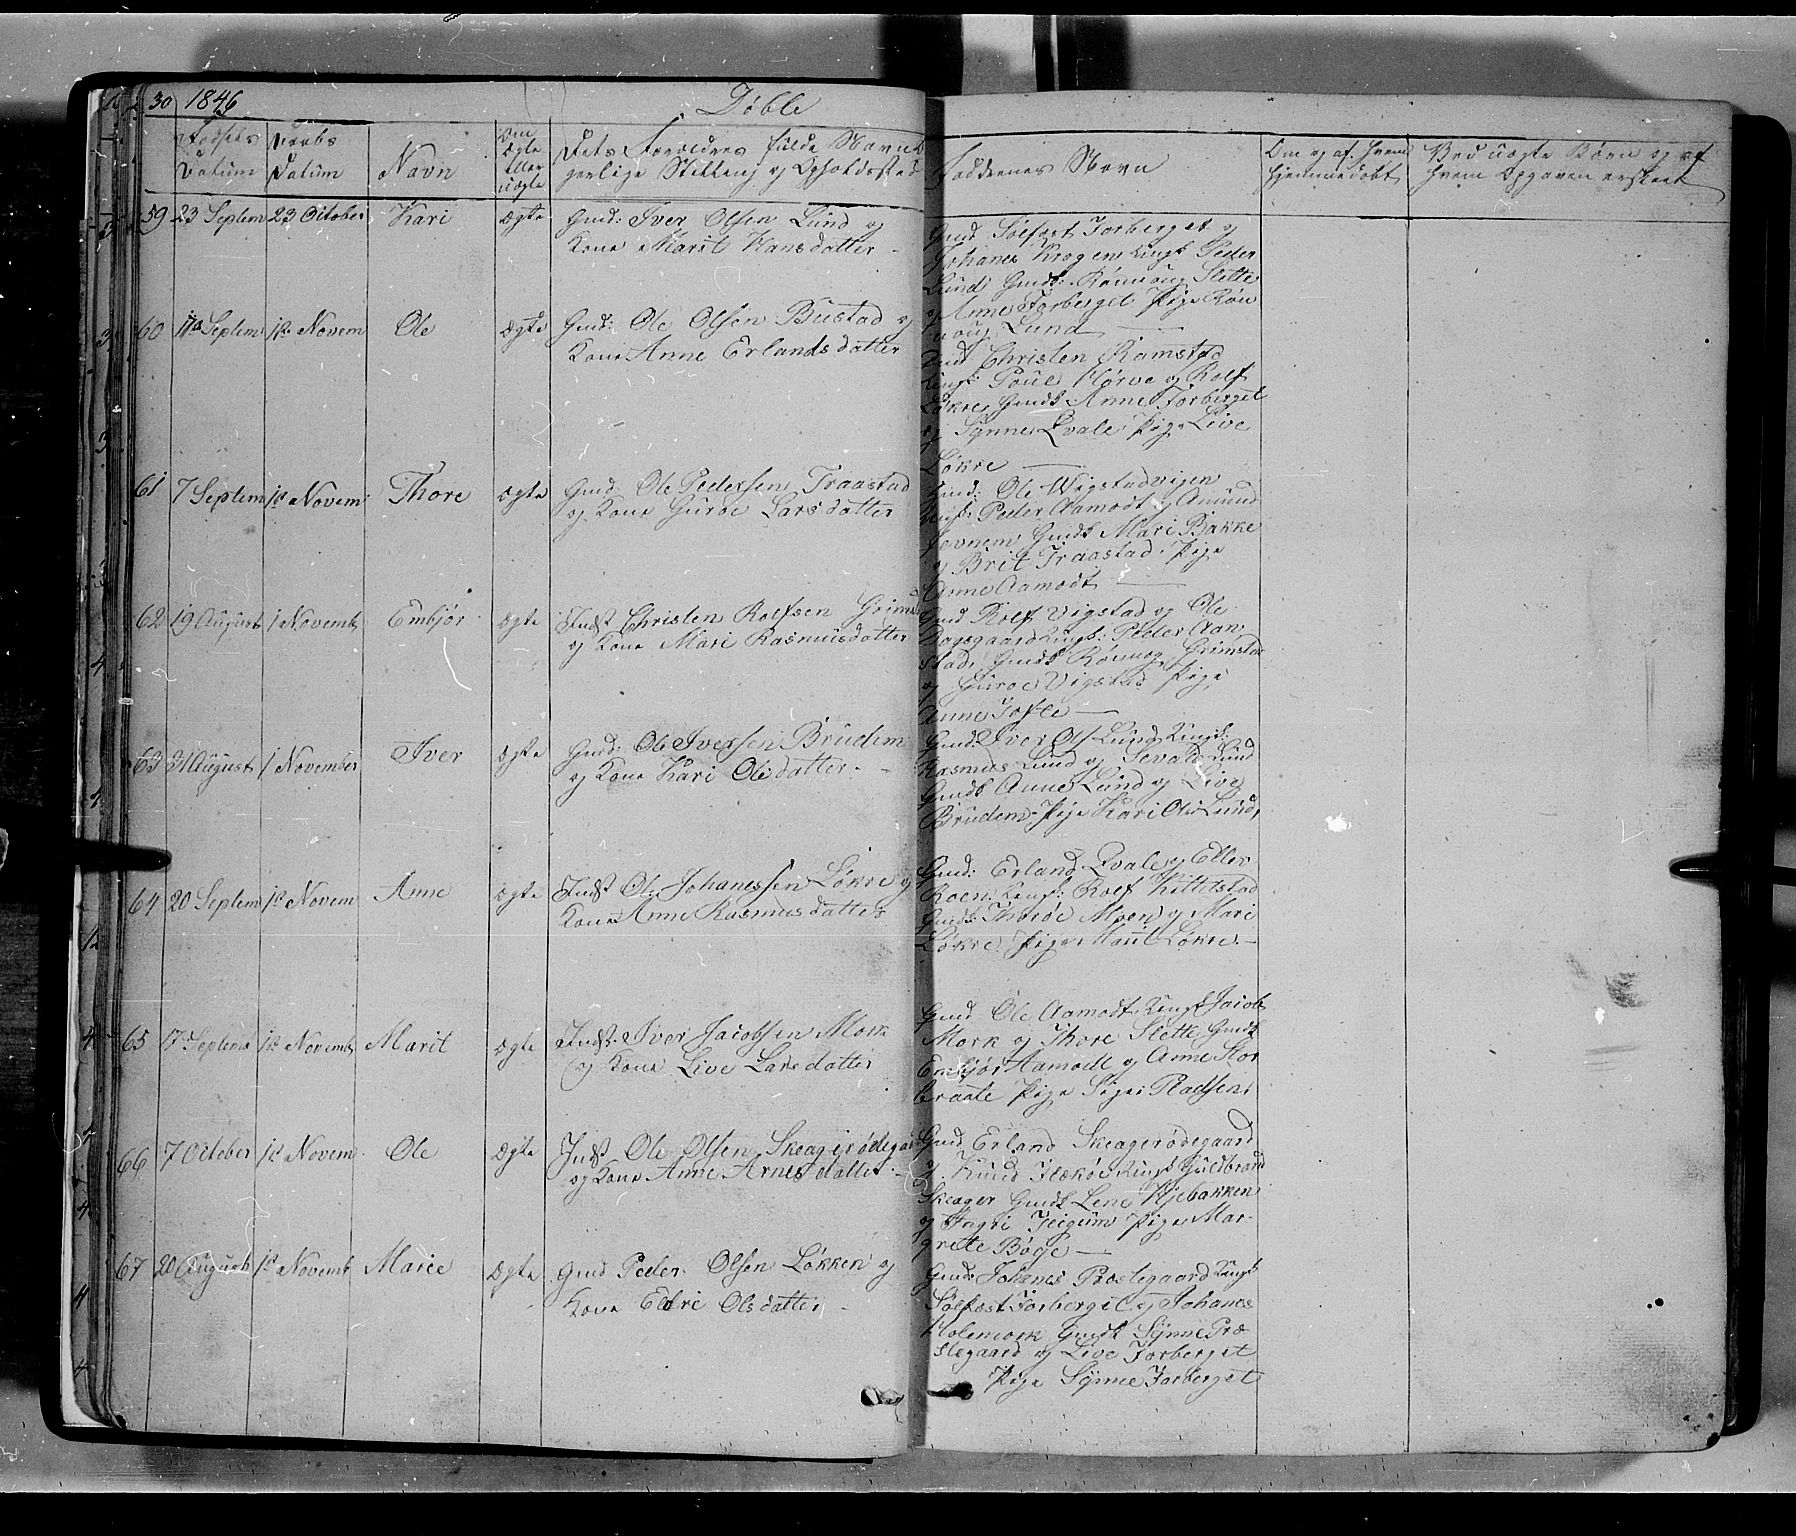 30 1846 Døbte
Fødsels Datum
Daabs Datum
Navn
Om Ægte eller uægte
Dets Forældres fulde Navne
gerlige Stilling og Opholdssted
Faddernes Navn
Om og af Hvem hjemmedøbt
Ved uægte Børn og af
hvem Opgaven er skeet
59 23 Septem 23 October Kari Ægte Gmd: Iver Olsen Lund og
Kone Marit Hansdatter -
Gmd Solfæst Forberget og
Johanes Krogen Ungk Peder
Lund Gmdk: Rønnoug Slette
og Anne Forberget Pige Røn
noug Lund
60 11te Septem 1st Novem Ole Ægte Gmd: Ole Olsen Bustad og
Kone Anne Erlandsdatter
Gmd Christen Ramstad
Ungk: Poul Hørve og Rolf
Løkre, Gmdk Anne Forberget
og Synne Qvale Pige Live
Løkre
61 7 Septem 1st Novem: Thore Ægte Gmd: Ole Pedersen Traastad
og Kone Guroe Larsdatter
Gmd: Ole Wigstadvigen
Ungk: Peder Aamodt og Amund
Jevnem Gmdk Mari Bakke
og Brit Traastad Pige
Anne Aamodt
62 19 August 1 Novemb Embjør Ægte Indst Christen Rolfsen Grims
og Kone Mari Rasmusdatter
Gmd Rolf Vigstad og Ole
Bogsgaard Ungk: Peder Aan-
stad, Gmdk Rønnog Grimstad
og Guroe Vigstad Pige
Anne Tofte
63 31 August 1 November Iver Ægte Gmd: Ole Iversen Brudem
og Kone Kari Olsdatter -
Gmd: Iver Ols Lund Ungk:
Rasmus Lund og Sevald Lund
Gmdk Anne Lund og Live
Bruden Pige Kari Ols Lund,
64 20 Septem 1st Novem Anne Ægte Indst Ole Johanessen Løkre og
Kone Anne Rasmusdatter
Gmd: Erland Qvale og Eller
Roen Ungk: Rolf Kittelstad
Gmdk Thorøe Moen og Mari
Løkre Pige Marit Løkre -
65 17 Septemb 1st Novemb Marit Ægte Indst: Iver Jacobsen Mork
og Kone Live Larsdatter
Gmd Ole Aamodt Ungk Jacob
Mork og Thore Slette Gmdk
Embjør Aamodt og Anne Stor
braate Pige Siger Pladsen
66 7 October 1st Novem Ole Ægte Indst Ole Olsen Skeagerødegaa
og Kone Anne Arnesdatter -
Gmd Erland Skeagerødegaard
og Knud Flekøe Ungk Guldbrand
Skeager Gmdk Lene Kjebakken
og Ingri Teigum Pige Mar-
grete Bøge
67 20 August 1st Novemb Marie Ægte Gmd Peder Olsen Løkken og
Kone Eldri Olsdatter, -
Gmd: Johanes Præstegaard Ungk
Solfæst Forberget og Johanes
Holemork Gmdk Synne Præ
stegaard og Live Forberget
Pige Synne Forberget